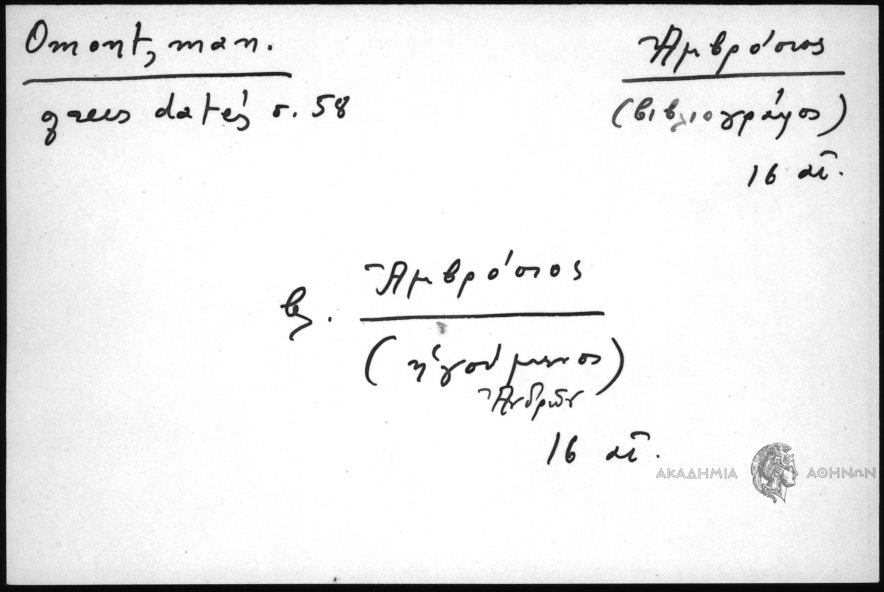 Omont, man.
grecs datés σ. 58
Ἀμβρόσιος
(βιβλιογράφος)
16 αἰ.
βλ. Ἀμβρόσιος
(ἡγούμενος)
Ἀνδρῶν
16 αἰ.
ΑΚΑΔΗΜΙΑ ΑΘΗΝΩΝ